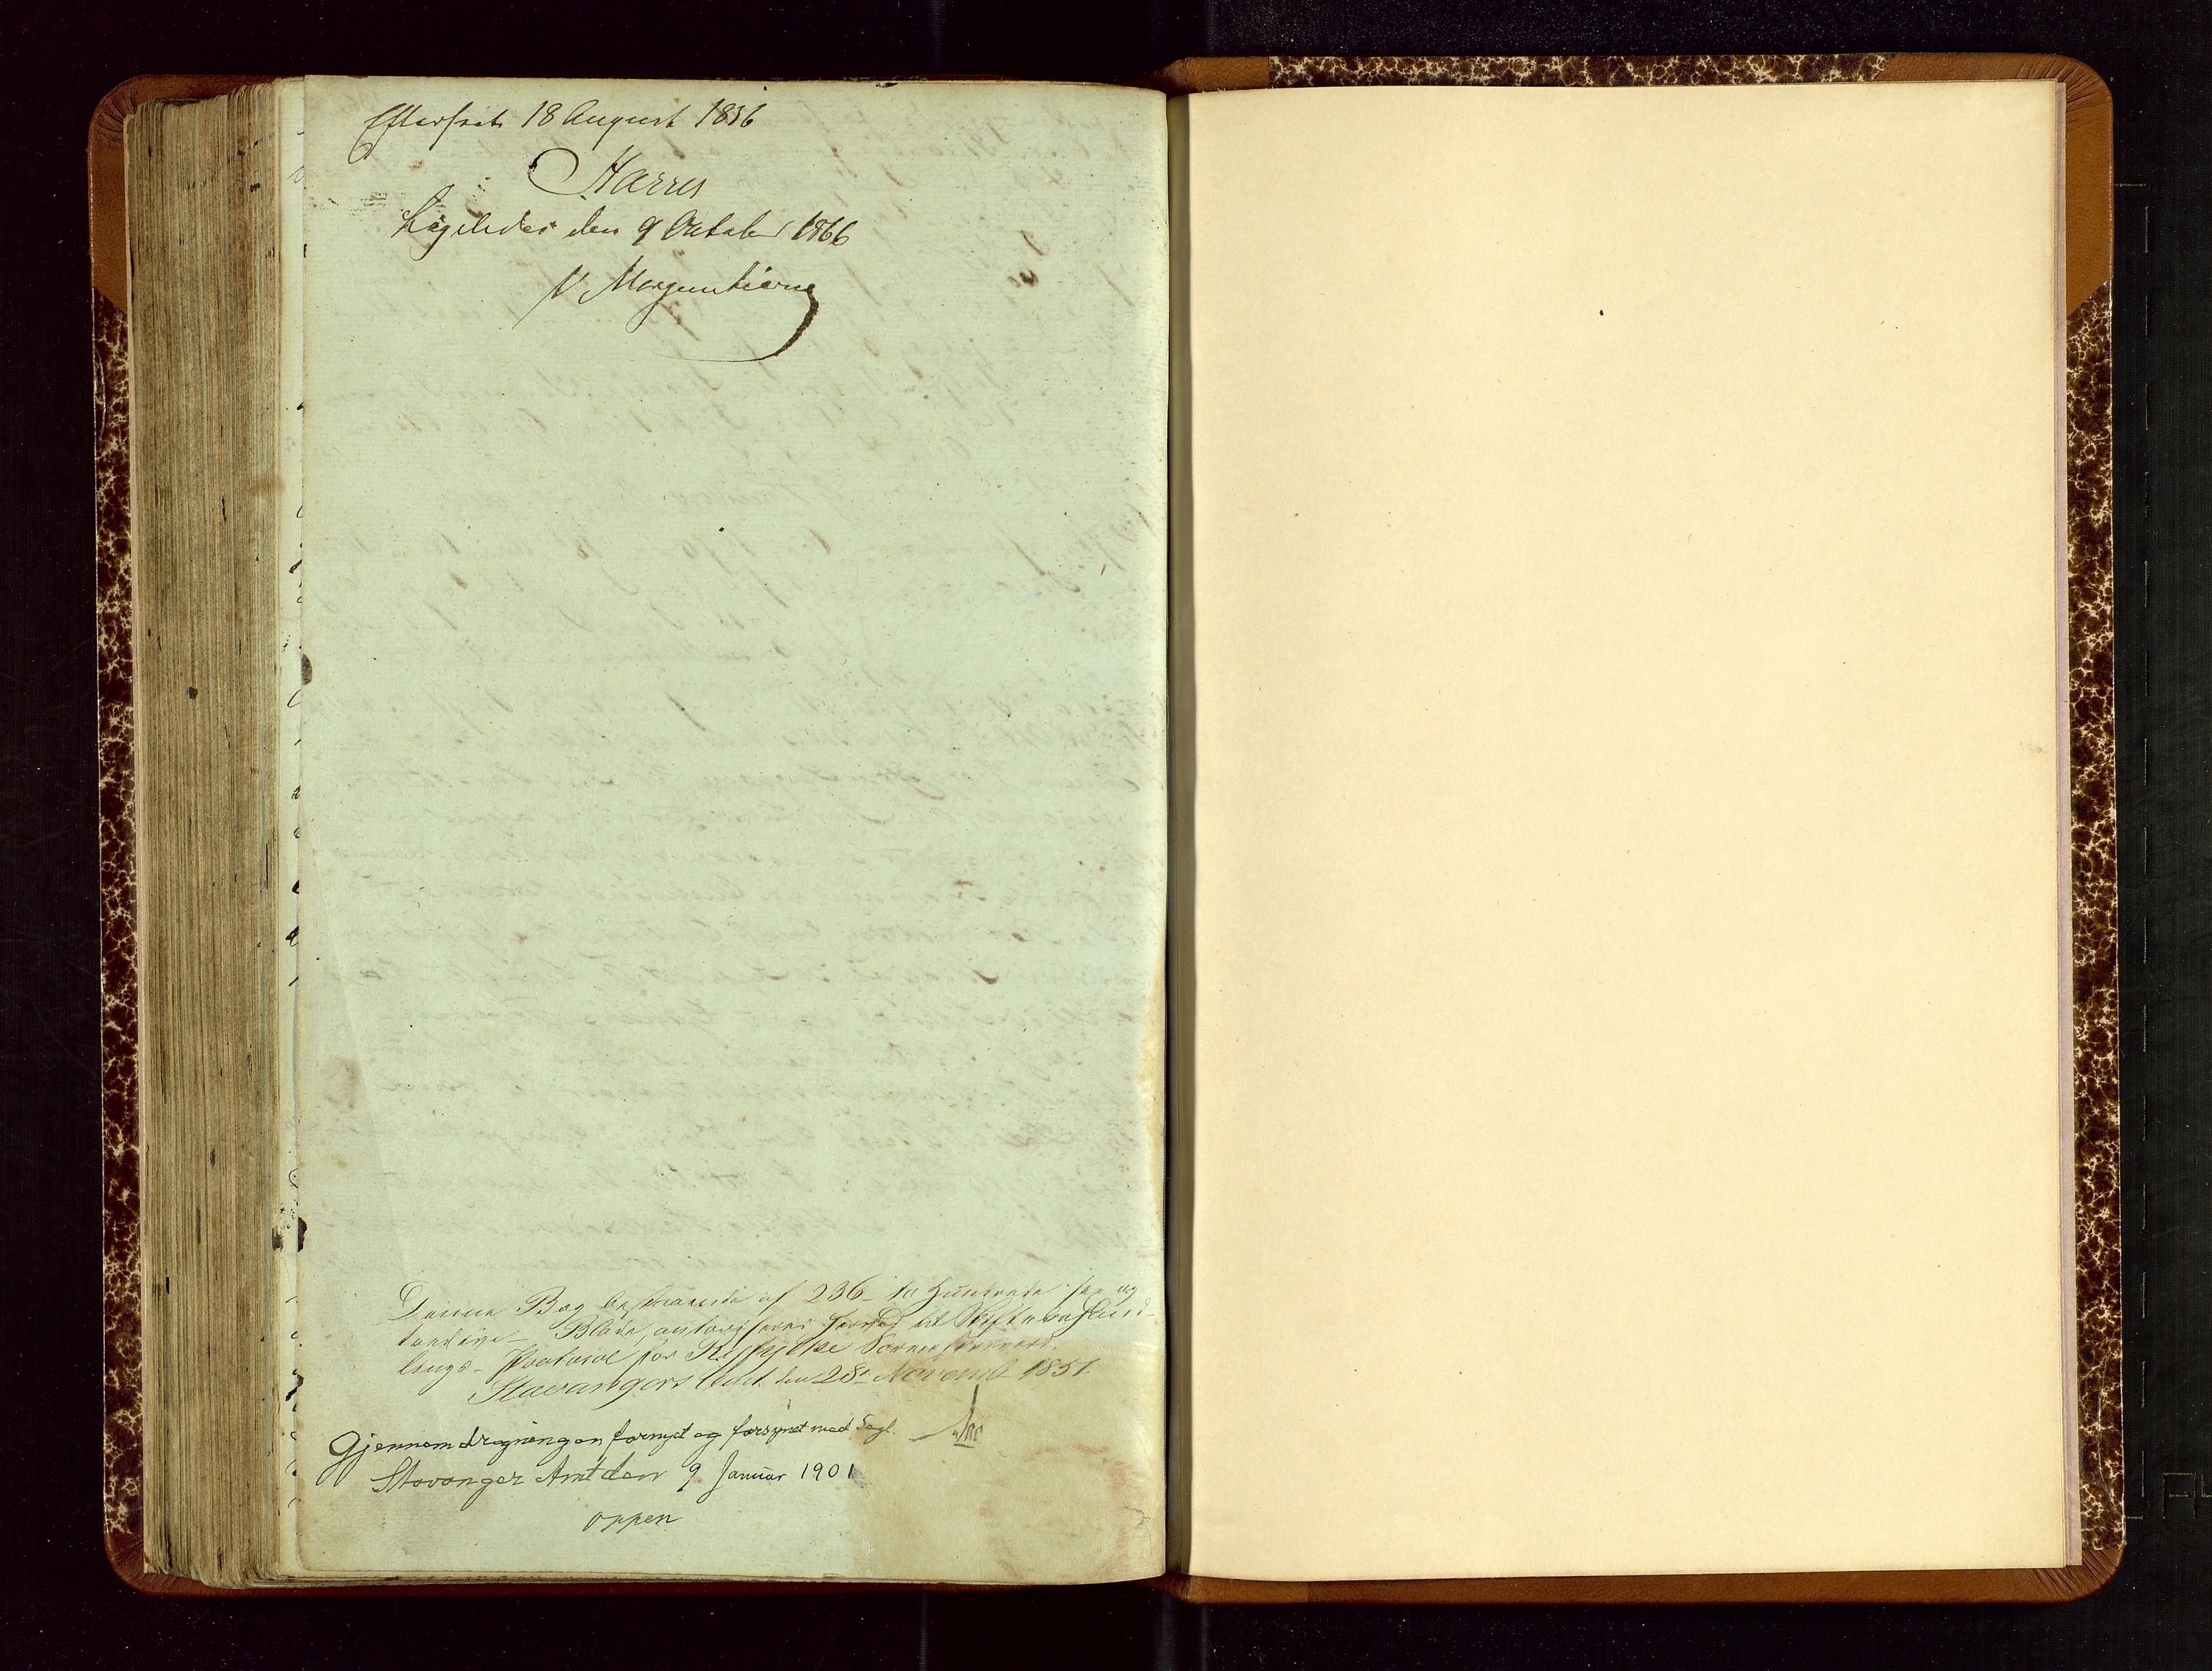 Efterseet 18 August 1856
Harris
Ligeledes den 9 October 1866
V Morgenstierne
Denne Bog bestaaende af 236 - to Hundrede sex og
tredive - Blade, autoriseres herved til Skiftebehand-
lings - Protocol for Ryfylke Sorenskriveri.
Stavanger Amt den 28. Novemb 1851
Gjennemdragningen fornyet og forsynet med Segl.
Stavanger Amt den 9 Januar 1901
Oppen